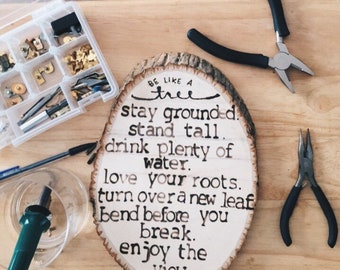 BE LIKE A
tree
stay grounded.
stand tall.
drink plenty of
water.
love your roots.
turn over a new leaf.
bend before you
break.
enjoy the
view